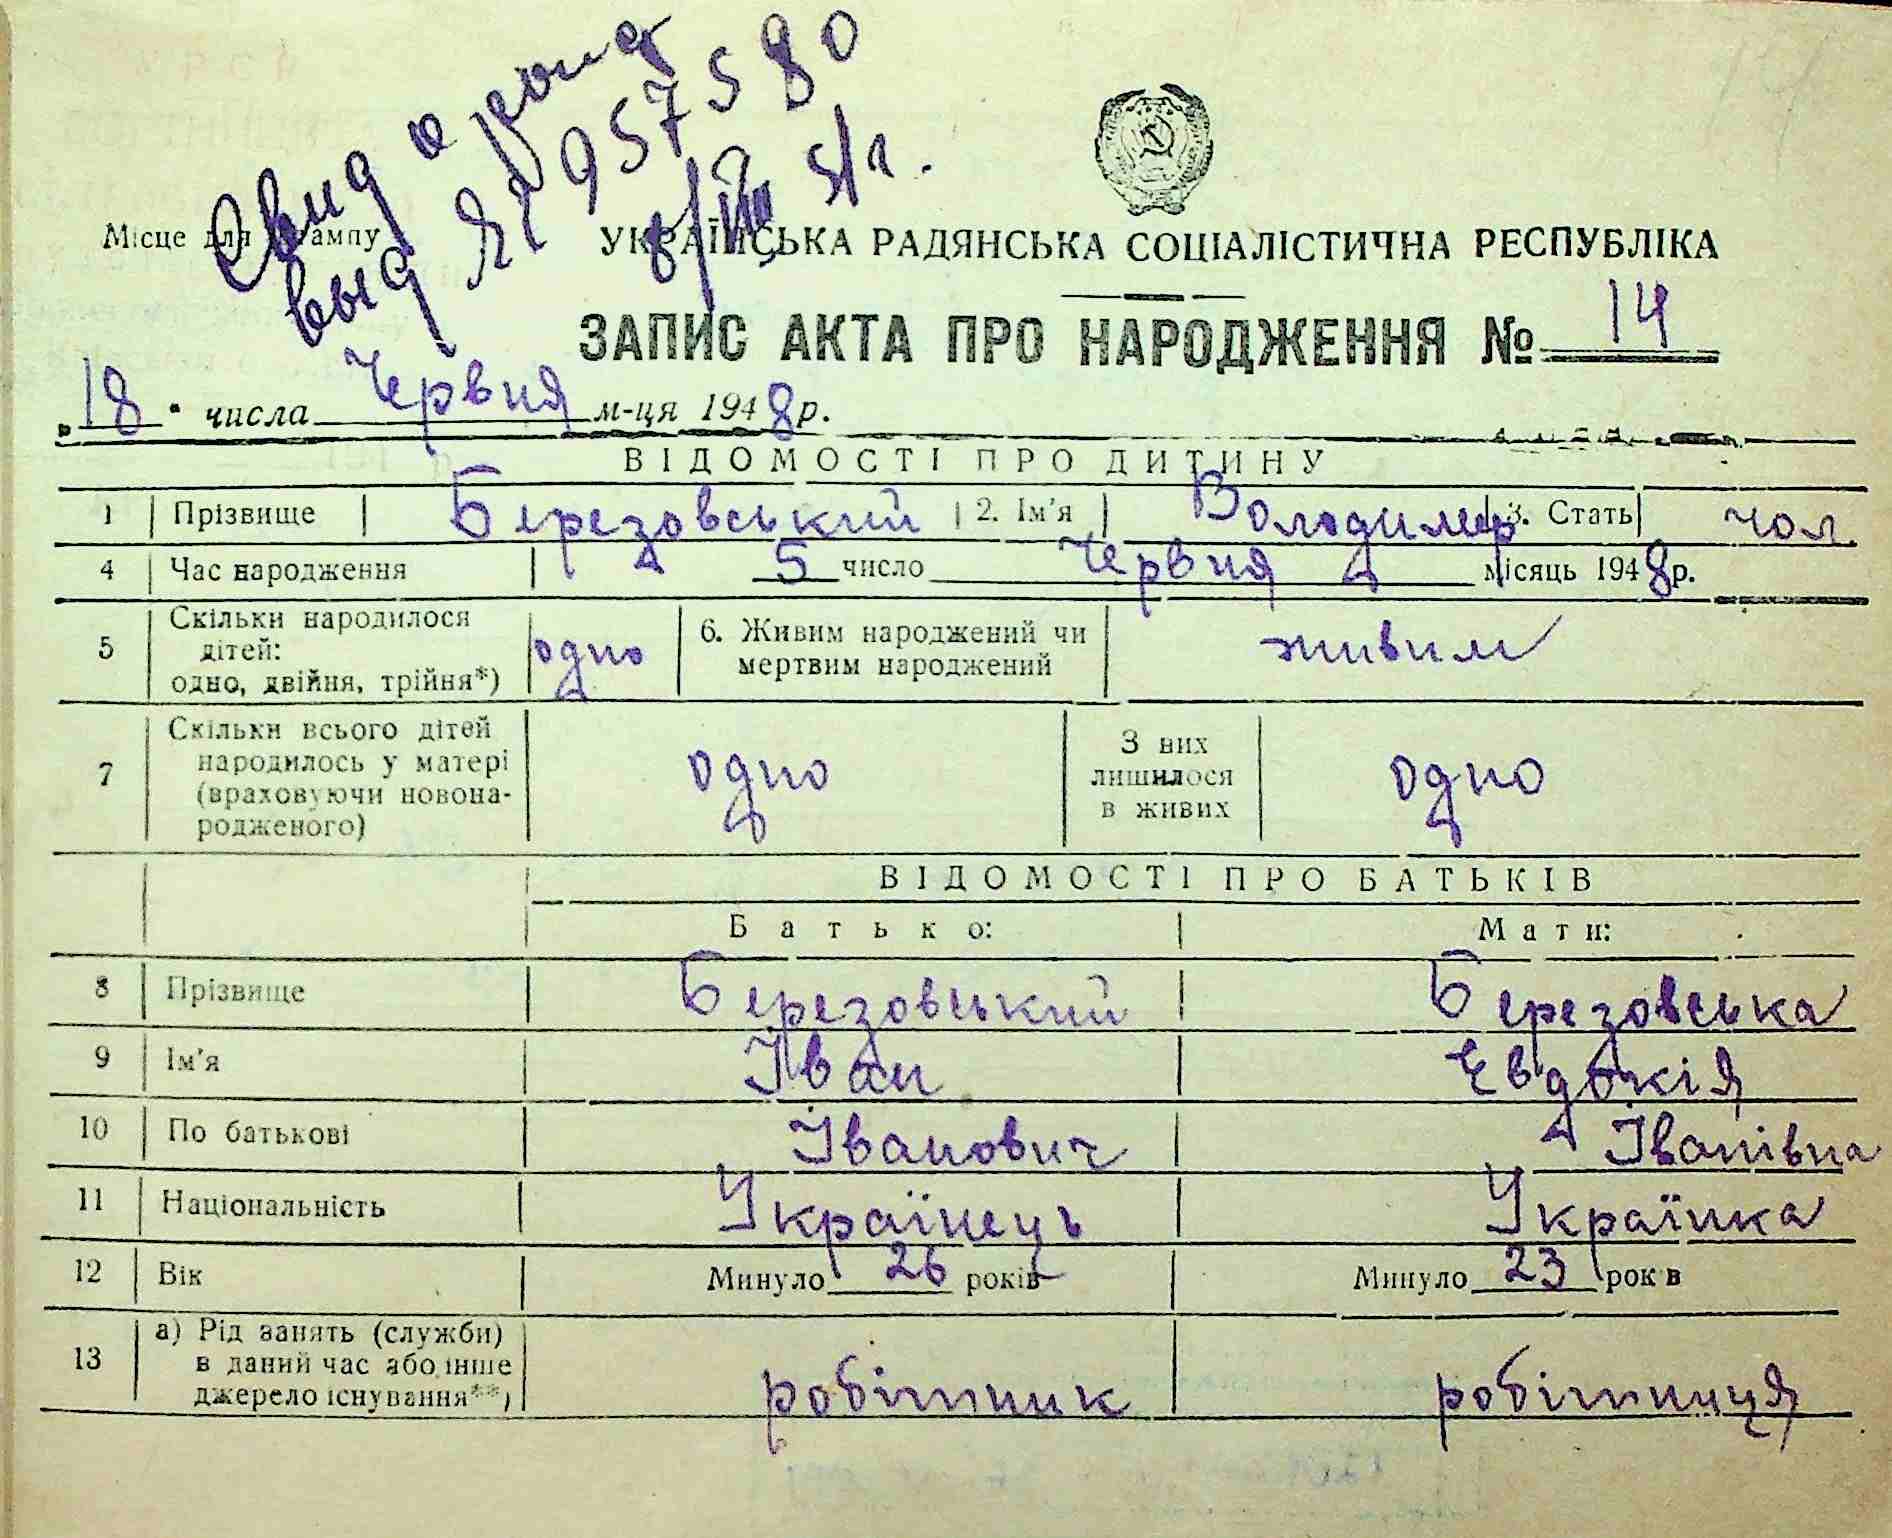 Свид о рожд
выд ЯГ 957580
8/VIII 51г.
Місце для штампу
УКРАЇНСЬКА РАДЯНСЬКА СОЦІАЛІСТИЧНА РЕСПУБЛІКА
ЗАПИС АКТА ПРО НАРОДЖЕННЯ № 14
„18" числа Червня м-ця 1948 р.
ВІДОМОСТІ ПРО ДИТИНУ
1 Прізвище Березовський 2. Ім'я Володимер 3. Стать чол.
4 Час народження 5 число Червня місяць 1948 р.
5 Скільки народилося дітей: одно, двійня, трійня*) одно 6. Живим народжений чи мертвим народжений живим
7 Скільки всього дітей народилось у матері (враховуючи новонародженого) одно З них лишилося в живих одно
ВІДОМОСТІ ПРО БАТЬКІВ
Батько: Мати:
8 Прізвище Березовський Березовська
9 Ім'я Іван Евдокія
10 По батькові Іванович Іванівна
11 Національність Українець Українка
12 Вік Минуло 26 років Минуло 23 рок в
13 а) Рід занять (служби) в даний час або інше джерело існування**) робітник робітниця